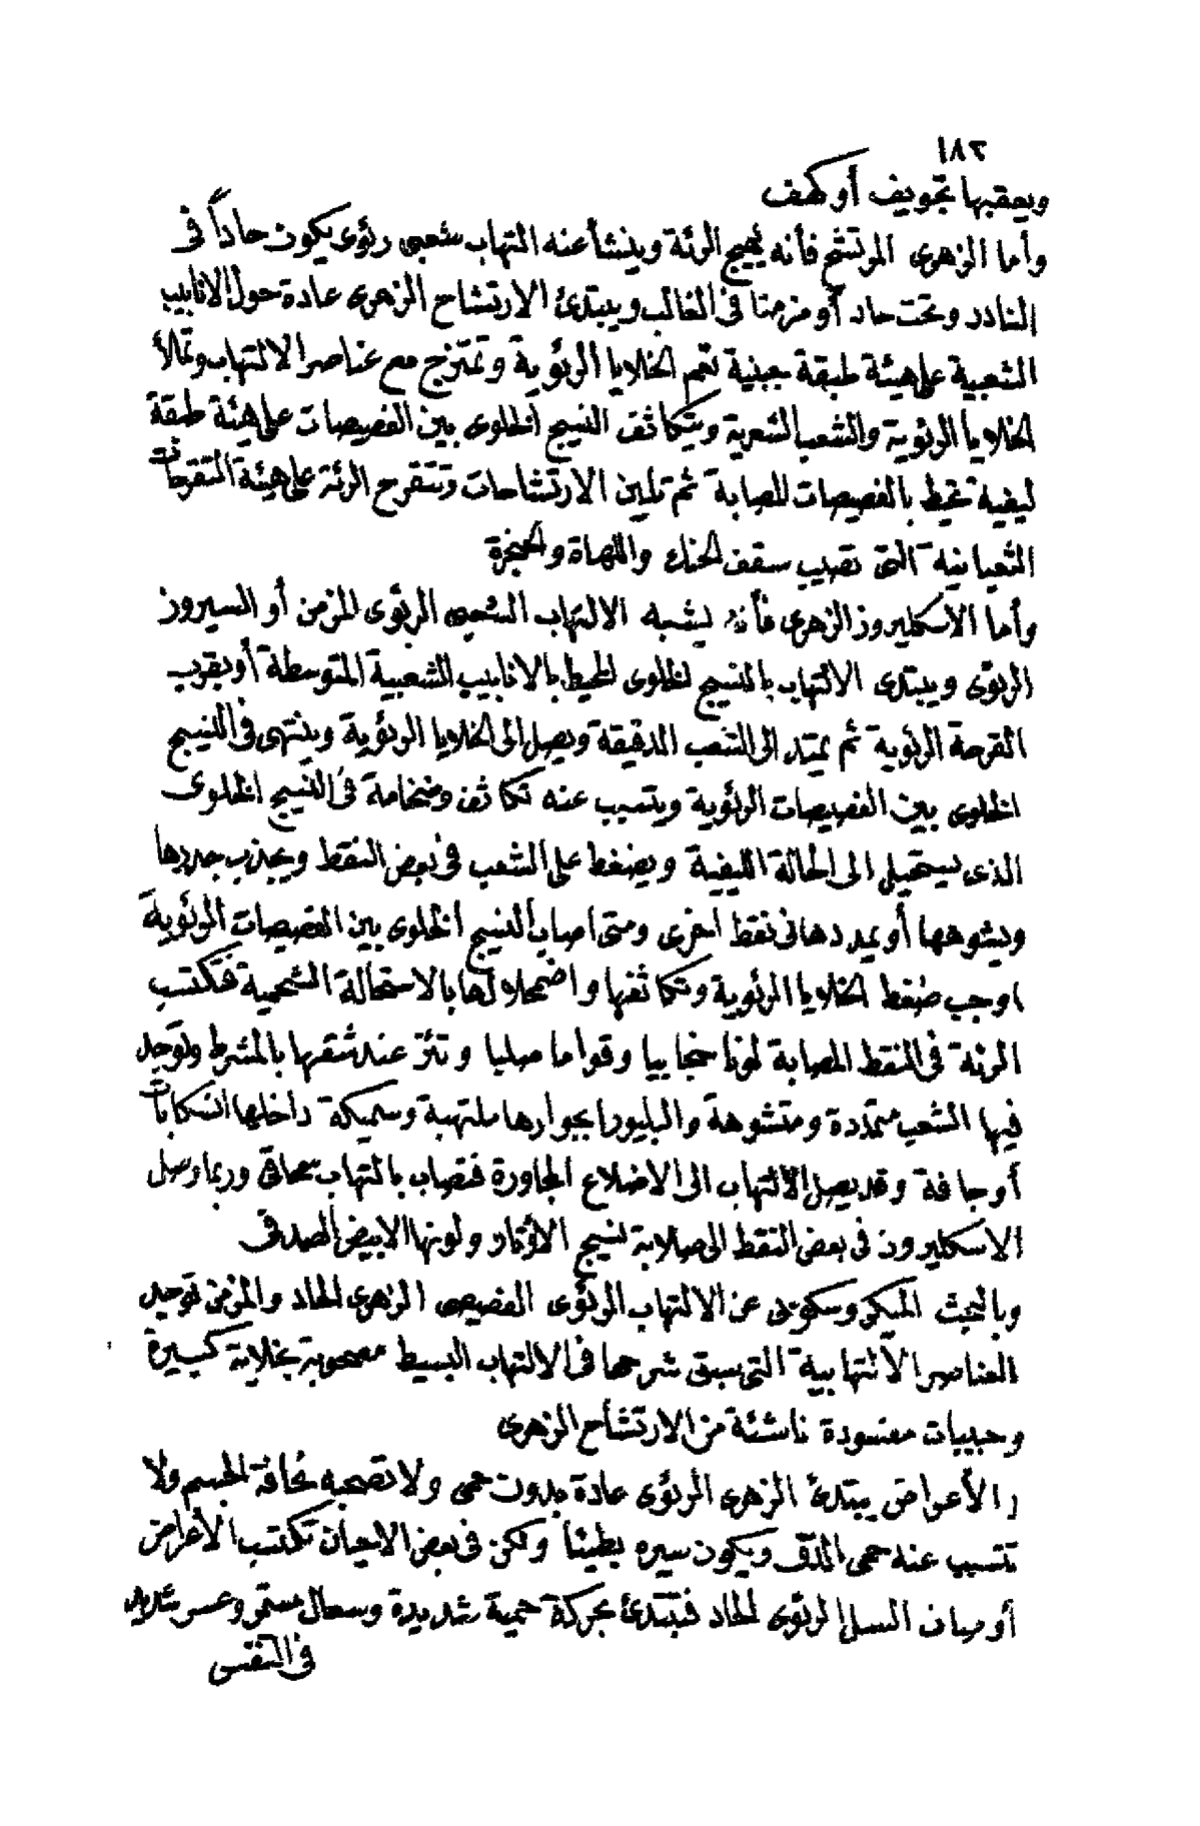 ١٨٣
ويعقبها تجويف أو كهف
وأما الزهرى المرتشح فأنه يهيج الرئة وينشأ عنه التهاب شعبى رئوى يكون حاداً فى
النادر وتحت حاد أو مزمنا فى الغالب ويبتدئ الارتشاح الزهرى عادة حول الانابيب
الشعبية على هيئة طبقة جبنية تعم الخلايا الرئوية وتمتزج مع عناصر الالتهاب وتملأ
الخلايا الرئوية والشعب الشعرية ويتكاثف النسيج الخلوى بين الفصيصات على هيئة طبقة
ليفية تحيط بالفصيصات المصابة ثم تلين الارتشاحات وتتقرح الرئة على هيئة التقرحات
الثعبانية التى تصيب سقف الحنك واللهاة والحنجرة
وأما الاسكليروز الزهرى فأنه يشبه الالتهاب الشعبى الرئوى المزمن أو السيروز
الرئوى ويبتدى الالتهاب بالنسيج الخلوى المحيط بالانابيب الشعبية المتوسطة أو بقرب
القرحة الرئوية ثم يمتد الى الشعب الدقيقة ويصل الى الخلايا الرئوية وينتهى فى النسيج
الخلوى بين الفصيصات الرئوية ويتسبب عنه تكاثف وضخامة فى النسيج الخلوى
الذى يستحيل الى الحالة الليفية ويضغط على الشعب فى بعض النقط ويجذب جدرها
ويشوهها أو يمددها فى نقط اخرى ومتى اصاب النسيج الخلوى بين الفصيصات الرئوية
اوجب ضغط الخلايا الرئوية وتكاثفها واضمحلالها بالاستحالة الشحمية فتكتسب
الرئة فى النقط المصابة لونا سنجابيا وقواما صلبا وتئز عند شقها بالمشرط وتوجد
فيها الشعب متمددة ومتشوهة والبليورا بجوارها ملتهبة وسميكة داخلها انسكابات
أو جافة وقد يصل الالتهاب الى الاضلاع المجاورة فتصاب بالتهاب سمحاقى وربما وصل
الاسكليروز فى بعض النقط الى صلابة نسيج الأوتار ولونها الابيض الصدفى
وبالبحث الميكروسكوبى عن الالتهاب الرئوى الفصيصى الزهرى الحاد والمزمن توجد
العناصر الالتهابية التى سبق شرحها فى الالتهاب البسيط مصحوبة بخلايا كبيرة
وحبيبات معتمودة ناشئة من الارتشاح الزهرى
(الأعراض يبتدئ الزهرى الرئوى عادة بدون حمى ولا تصحبه نحافة الجسم ولا
تتسبب عنه حمى الدق ويكون سيره بطيئا ولكن فى بعض الاحيان تكتسب الأعراض
أوصاف السل الرئوى الحاد فتبتدئ بحركة حمية شديدة وسعال مستمر وعسر شديد
فى التنفس